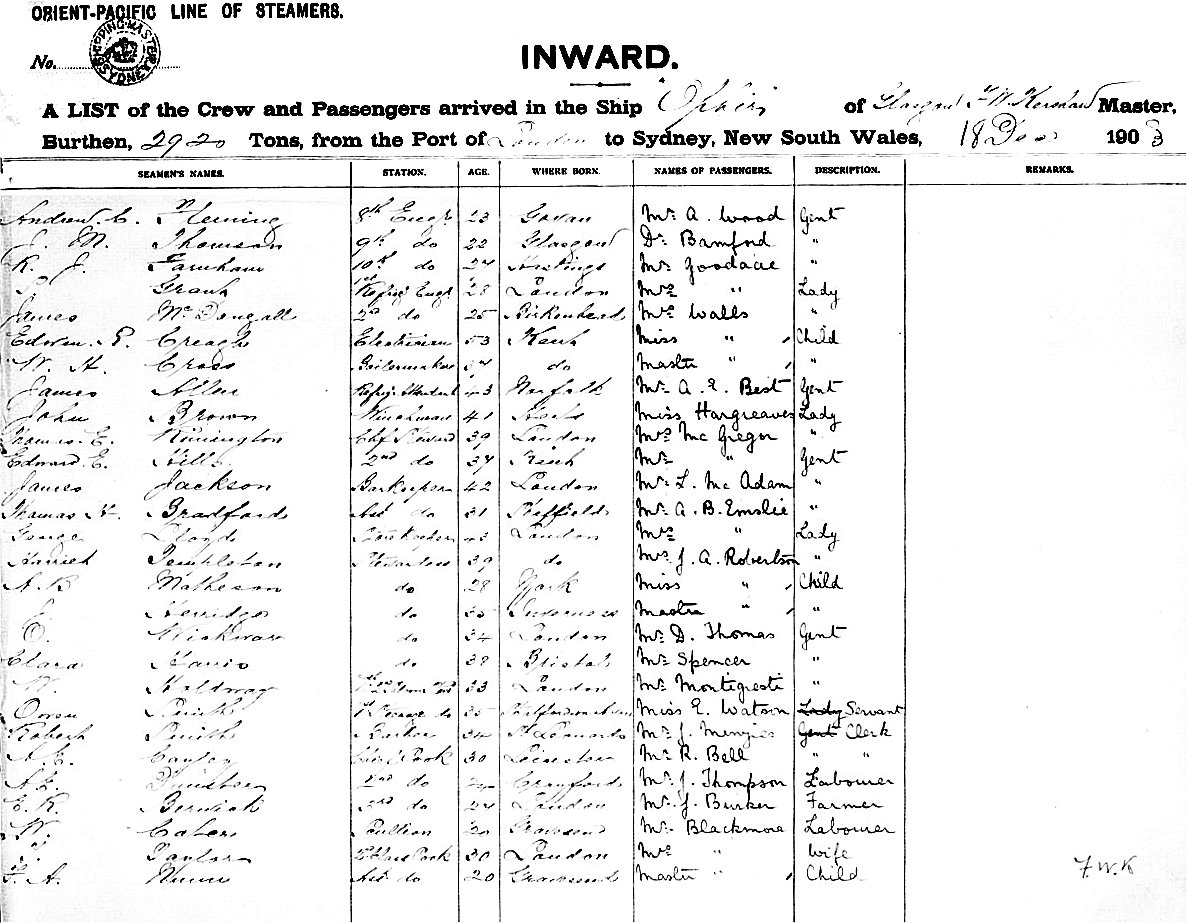 ORIENT-PACIFIC LINE OF STEAMERS.
No.
SHIPPING MASTER SYDNEY
INWARD.
A LIST of the Crew and Passengers arrived in the Ship Ophir of Glasgow F W Kershaw Master,
Burthen, 2920 Tons, from the Port of London to Sydney, New South Wales, 18 Dec 1903
SEAMEN'S NAMES. STATION. AGE. WHERE BORN. NAMES OF PASSENGERS. DESCRIPTION. REMARKS.
Andrew C. Fleming 8th Engr 23 Govan Mr. A. Wood Gent
J. M. Thomson 9th do 22 Glasgow Dr. Bamford "
R. J. Farnham 10th do 27 Hastings Mr Goodacre "
Grant 1st Refrig Engr 28 London Mrs " Lady
James McDougall 2nd do 25 Birkenhead Mrs Walls "
Edwin E. Creagh Electrician 53 Kent Miss " Child
W. H. Cross Boilermaker 37 do Master " "
James Allen 43 Norfolk Mr. A. E. Best Gent
John Brown Winchman 41 Miss Hargreaves Lady
Thomas E. Rimington Chf Steward 39 London Mrs McGregor "
Edward E. Hills 2nd do 37 Kent Mr. " Gent
James Jackson Barkeeper 42 London Mr. L. McAdam "
Thomas H. Bradford Ast do 31 Sheffield Mr. A. B. Emslie "
George Lloyd Storekeeper 43 London Mrs " Lady
Harriet Templeton Stewardess 39 do Mrs J. A. Robertson "
A. B. Matheson do 28 York Miss " Child
J. Herridge do 35 Inverness Master " "
O. Wickwar do 34 London Mr. D. Thomas Gent
Clara Harris do 38 Bristol Mr. Spencer "
W. Holdway 33 London Mr. Montegresti "
Smith 35 Miss E. Watson Lady Servant
Robert Smith Barber 34 St Leonards Mr. J. Menzies Gent Clerk
A. E. Cayley Chief Cook 30 Leicester Mr. R. Bell " "
Dunster 2nd do Crayford Mr. J. Thompson Labourer
E. R. Berwick 3rd do 27 London Mr. J. Burker Farmer
W. Cater 20 Gravesend Mr. Blackmore Labourer
Taylor 2nd Class Cook 30 London Mrs " Wife
F. A. Nunn Ast do 20 Gravesend Master " Child
F.W.K